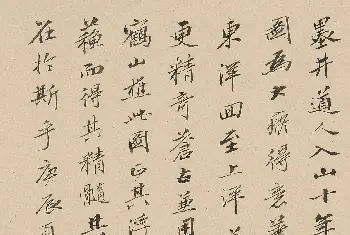 墨井道人入山十年
圖為大癡得意筆
東洋回至上洋
更精奇蒼古並用
鶴山樵此圖正其浮
蘊而得其精髓其
在於斯乎庚辰